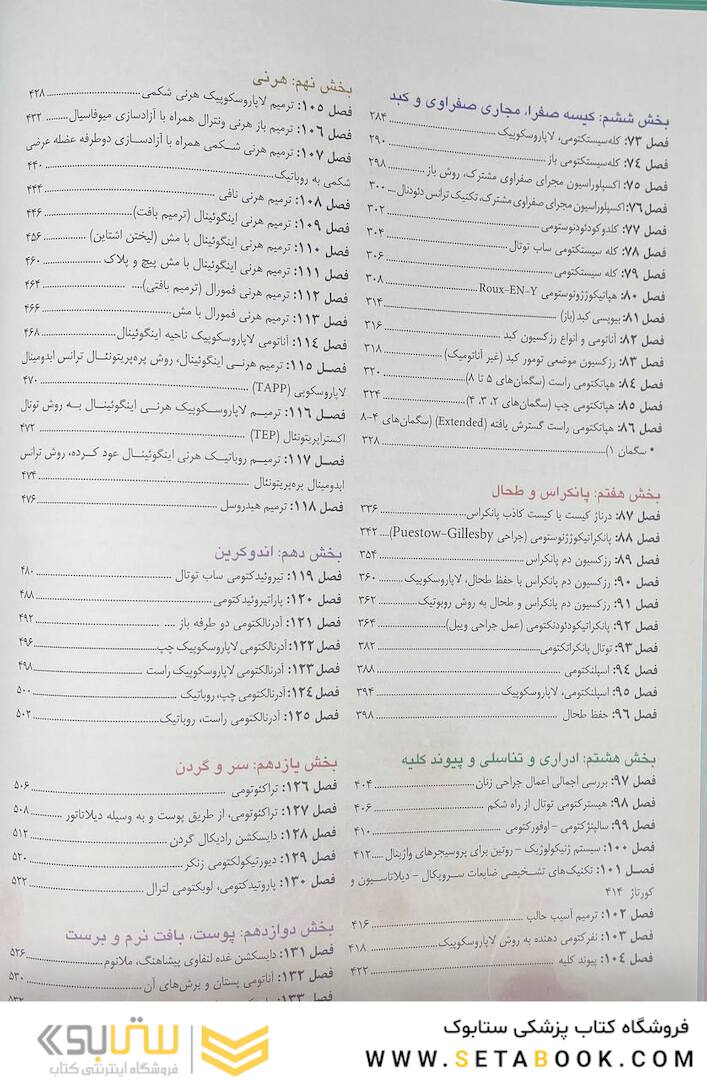 بخش ششم: کیسه صفرا، مجاری صفراوی و کبد
فصل ۷۳: کله‌سیستکتومی، لاپاروسکوپیک ۲۸۴
فصل ۷۴: کله‌سیستکتومی باز ۲۹۰
فصل ۷۵: اکسپلوراسیون مجرای صفراوی مشترک، روش باز ۲۹۸
فصل ۷۶: اکسپلوراسیون مجرای صفراوی مشترک، تکنیک ترانس دئودنال ۳۰۰
فصل ۷۷: کلدوکودئودنوستومی ۳۰۲
فصل ۷۸: کله سیستکتومی ساب توتال ۳۰۴
فصل ۷۹: کله سیستکتومی ۳۰۶
فصل ۸۰: هپاتیکوژژونوستومی Roux-EN-Y ۳۰۸
فصل ۸۱: بیوپسی کبد (باز) ۳۱۴
فصل ۸۲: آناتومی و انواع رزکسیون کبد ۳۱۶
فصل ۸۳: رزکسیون موضعی تومور کبد (غیر آناتومیک) ۳۱۸
فصل ۸۴: هپاتکتومی راست (سگمان‌های ۵ تا ۸) ۳۲۰
فصل ۸۵: هپاتکتومی چپ (سگمان‌های ۲، ۳، ۴) ۳۲۴
فصل ۸۶: هپاتکتومی راست گسترش یافته (Extended) (سگمان‌های ۴-۸
• سگمان ۱) ۳۲۸
بخش هفتم: پانکراس و طحال
فصل ۸۷: درناژ کیست یا کیست کاذب پانکراس ۳۳۶
فصل ۸۸: پانکراتیکوژژنوستومی (جراحی Puestow-Gillesby) ۳۴۲
فصل ۸۹: رزکسیون دم پانکراس ۳۵۴
فصل ۹۰: رزکسیون دم پانکراس با حفظ طحال، لاپاروسکوپیک ۳۶۰
فصل ۹۱: رزکسیون دم پانکراس و طحال به روش روبوتیک ۳۶۲
فصل ۹۲: پانکراتیکودئودنکتومی (عمل جراحی ویپل) ۳۶۴
فصل ۹۳: توتال پانکراتکتومی ۳۸۲
فصل ۹۴: اسپلنکتومی ۳۸۸
فصل ۹۵: اسپلنکتومی، لاپاروسکوپیک ۳۹۴
فصل ۹۶: حفظ طحال ۳۹۸
بخش هشتم: ادراری و تناسلی و پیوند کلیه
فصل ۹۷: بررسی اجمالی اعمال جراحی زنان ۴۰۴
فصل ۹۸: هیسترکتومی توتال از راه شکم ۴۰۶
فصل ۹۹: سالپنژکتومی - اوفورکتومی ۴۱۰
فصل ۱۰۰: سیستم ژنیکولوژیک - روتین برای پروسیجرهای واژینال ۴۱۲
فصل ۱۰۱: تکنیک‌های تشخیصی ضایعات سرویکال - دیلاتاسیون و
کورتاژ ۴۱۴
فصل ۱۰۲: ترمیم آسیب حالب ۴۱۶
فصل ۱۰۳: نفرکتومی دهنده به روش لاپاروسکوپیک ۴۱۸
فصل ۱۰۴: پیوند کلیه ۴۲۲
بخش نهم: هرنی
فصل ۱۰۵: ترمیم لاپاروسکوپیک هرنی شکمی ۴۲۸
فصل ۱۰۶: ترمیم باز هرنی ونترال همراه با آزادسازی میوفاسیال ۴۳۲
فصل ۱۰۷: ترمیم هرنی شکمی همراه با آزادسازی دوطرفه عضله عرضی
شکمی به روباتیک ۴۴۰
فصل ۱۰۸: ترمیم هرنی نافی ۴۴۴
فصل ۱۰۹: ترمیم هرنی اینگوئینال (ترمیم بافت) ۴۴۶
فصل ۱۱۰: ترمیم هرنی اینگوئینال با مش (لیختن اشتاین) ۴۵۶
فصل ۱۱۱: ترمیم هرنی اینگوئینال با مش پیچ و پلاک ۴۶۰
فصل ۱۱۲: ترمیم هرنی فمورال (ترمیم بافتی) ۴۶۴
فصل ۱۱۳: ترمیم هرنی فمورال با مش ۴۶۶
فصل ۱۱۴: آناتومی لاپاروسکوپیک ناحیه اینگوئینال ۴۶۸
فصل ۱۱۵: ترمیم هرنی اینگوئینال، روش پره‌پریتونئال ترانس ابدومینال
لاپاروسکوپی (TAPP) ۴۷۰
فصل ۱۱۶: ترمیم لاپاروسکوپیک هرنی اینگوئینال به روش توتال
اکستراپریتونئال (TEP) ۴۷۲
فصل ۱۱۷: ترمیم روباتیک هرنی اینگوئینال عود کرده، روش ترانس
ابدومینال پره‌پریتونئال ۴۷۴
فصل ۱۱۸: ترمیم هیدروسل ۴۷۶
بخش دهم: اندوکرین
فصل ۱۱۹: تیروئیدکتومی ساب توتال ۴۸۰
فصل ۱۲۰: پاراتیروئیدکتومی ۴۸۸
فصل ۱۲۱: آدرنالکتومی دو طرفه باز ۴۹۲
فصل ۱۲۲: آدرنالکتومی لاپاروسکوپیک چپ ۴۹۶
فصل ۱۲۳: آدرنالکتومی لاپاروسکوپیک راست ۴۹۸
فصل ۱۲۴: آدرنالکتومی چپ، روباتیک ۵۰۰
فصل ۱۲۵: آدرنالکتومی راست، روباتیک ۵۰۲
بخش یازدهم: سر و گردن
فصل ۱۲۶: تراکئوتومی ۵۰۶
فصل ۱۲۷: تراکئوتومی، از طریق پوست و به وسیله دیلاتاتور ۵۰۸
فصل ۱۲۸: دایسکشن رادیکال گردن ۵۱۲
فصل ۱۲۹: دیورتیکولکتومی زنکر ۵۲۰
فصل ۱۳۰: پاروتیدکتومی، لوبکتومی لترال ۵۲۲
بخش دوازدهم: پوست، بافت نرم و برست
فصل ۱۳۱: دایسکشن غده لنفاوی پیشاهنگ، ملانوم ۵۲۶
فصل ۱۳۲: آناتومی پستان و برش‌های آن ۵۳۰
فصل ۱۳۳:
ستابوک
فروشگاه اینترنتی کتاب
فروشگاه کتاب پزشکی ستابوک
WWW.SETABOOK.COM